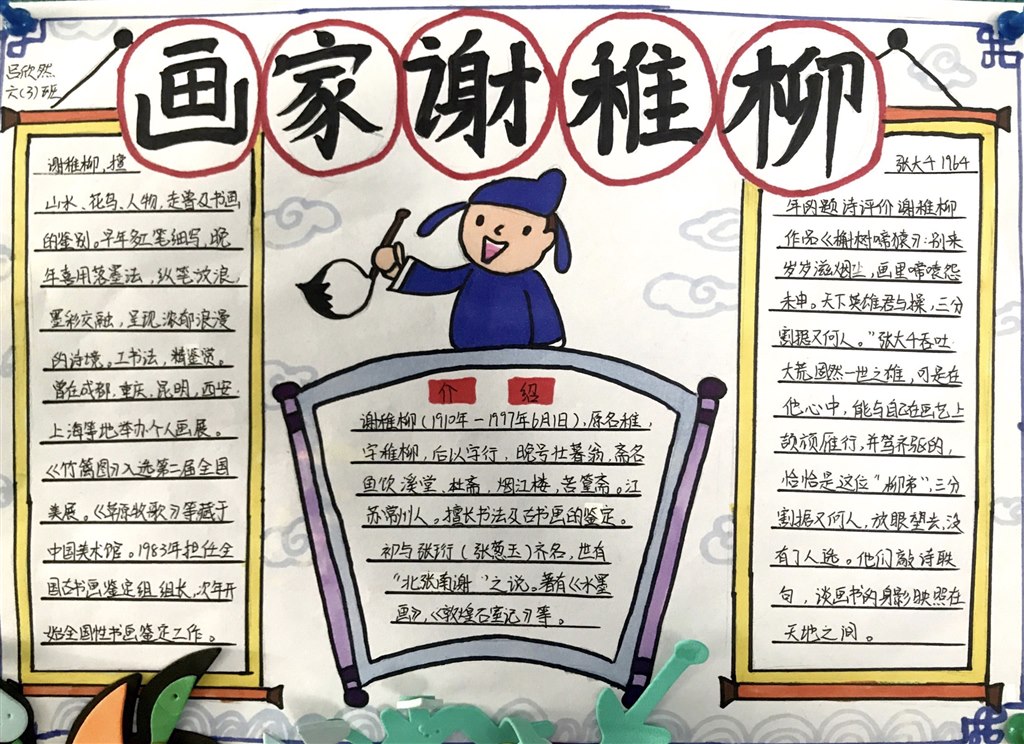 画家谢稚柳
吕欣然
六(3)班
谢稚柳,擅
山水、花鸟、人物、走兽及书画
的鉴别。早年多工笔细写,晚
年喜用落墨法,纵笔放浪,
墨彩交融,呈现浓郁浪漫
的诗境。工书法,精鉴赏。
曾在成都,重庆,昆明,西安,
上海等地举办个人画展。
《竹禽图》入选第二届全国
美展。《草原牧歌》等藏于
中国美术馆。1983年担任全
国古书画鉴定组组长,次年开
始全国性书画鉴定工作。
介绍
谢稚柳(1910年-1997年6月1日),原名稚,
字稚柳,后以字行,晚号壮暮翁,斋名
鱼饮溪堂、杜斋、烟江楼、苦篁斋。江
苏常州人。擅长书法及古书画的鉴定。
初与张珩(张葱玉)齐名,世有
“北张南谢”之说。著有《水墨
画》,《敦煌石室记》等。
张大千1964
年因题诗评价谢稚柳
作品《槲树啼猿》:别来
岁岁滋烟尘,画里啼猿怨
未申。天下英雄君与操,三分
割据又何人。”张大千吞吐
大荒固然一世之雄,可是在
他心中,能与自己在画艺上
颉颃雁行,并驾齐驱的,
恰恰是这位“柳弟”,三分
割据又何人,放眼望去,没
有了人选。他们敲诗联
句,谈画书的身影映照在
天地之间。